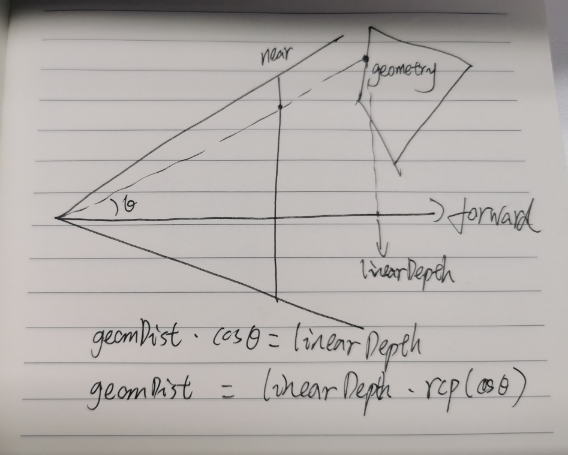 near
geometry
θ
forward
linearDepth
geomDist · cosθ = linearDepth
geomDist = linearDepth · rcp(cosθ)